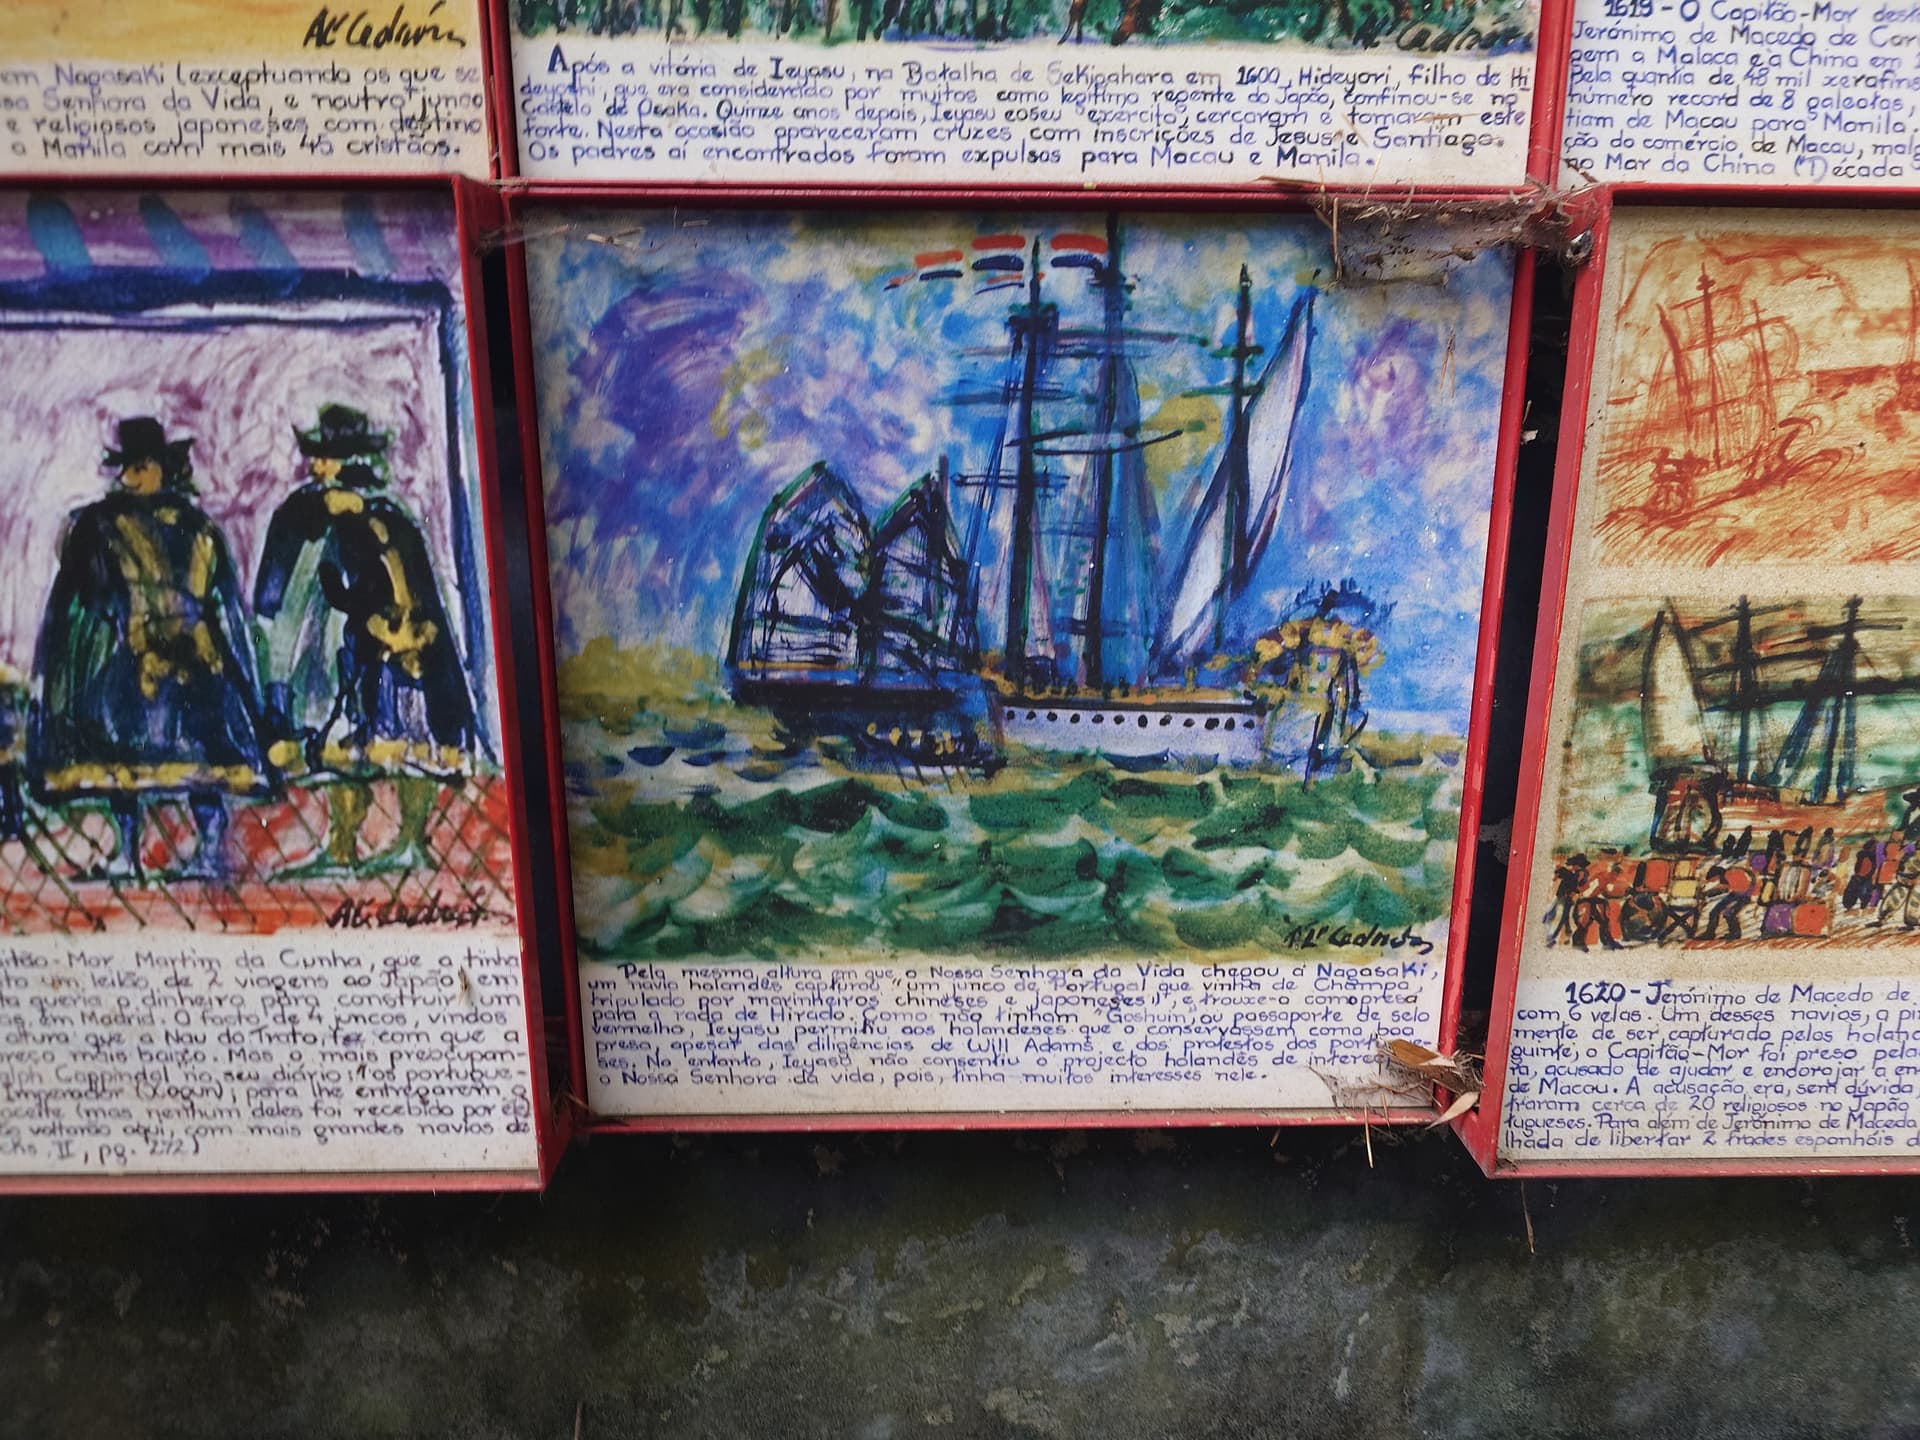 Al Cedrón
em Nagasaki (exceptuando os que se
Senhora da Vida, e noutro junco
e religiosos japoneses, com destino
a Manila com mais 45 cristãos.
Após a vitória de Ieyasu, na Batalha de Sekigahara em 1600, Hideyori, filho de Hi
deyoshi, que era considerado por muitos como legítimo regente do Japão, confinou-se no
Castelo de Osaka. Quinze anos depois, Ieyasu eoseu exército, cercaram e tomaram este
forte. Nesta ocasião apareceram cruzes com inscrições de Jesus e Santiago.
Os padres aí encontrados foram expulsos para Macau e Manila.
1619 - O Capitão-Mor
Jerónimo de Macedo de Car
a Malaca e à China em 1
pela quantia de 48 mil xerafins
número record de 8 galeotas,
tiam de Macau para Manila.
ção do comércio de Macau,
no Mar da China
pitão-Mor Martim da Cunha, que a tinha
um leilão de 2 viagens ao Japão em
queria o dinheiro para construir um
em Madrid. O facto de 4 juncos, vindos
altura que a Nau do Trato, fez com que a
preço mais baixo. Mas o mais preocupan-
alph Coppindal no seu diário: "os portugue-
Imperador (Xogun), para lhe entregarem o
aceite (mas nenhum deles foi recebido por ele
voltarão aqui, com mais grandes navios de
II, pg. 272)
Pela mesma altura em que o Nossa Senhora da Vida chegou a Nagasaki,
um navio holandês capturou "um junco de Portugal que vinha de Champa,
tripulado por marinheiros chineses e japoneses", e trouxe-o como presa
para a rada de Hirado. Como não tinham "Goshuin", ou passaporte de selo
vermelho, Ieyasu permitiu aos holandeses que o conservassem como boa
presa, apesar das diligências de Will Adams e dos protestos dos portugue-
ses. No entanto, Ieyasu não consentiu o projecto holandês de interce
o Nossa Senhora da vida, pois, tinha muitos interesses nele.
1620 - Jerónimo de Macedo de
com 6 velas. Um desses navios, a
mente de ser capturado pelos holand
guinte, o Capitão-Mor foi preso pela
ra, acusado de ajudar e endorajar a en
de Macau. A acusação era, sem dúvida
traram cerca de 20 religiosos no Japão
tugueses. Para além de Jerónimo de Macedo
lhada de libertar 2 frades espanhóis d